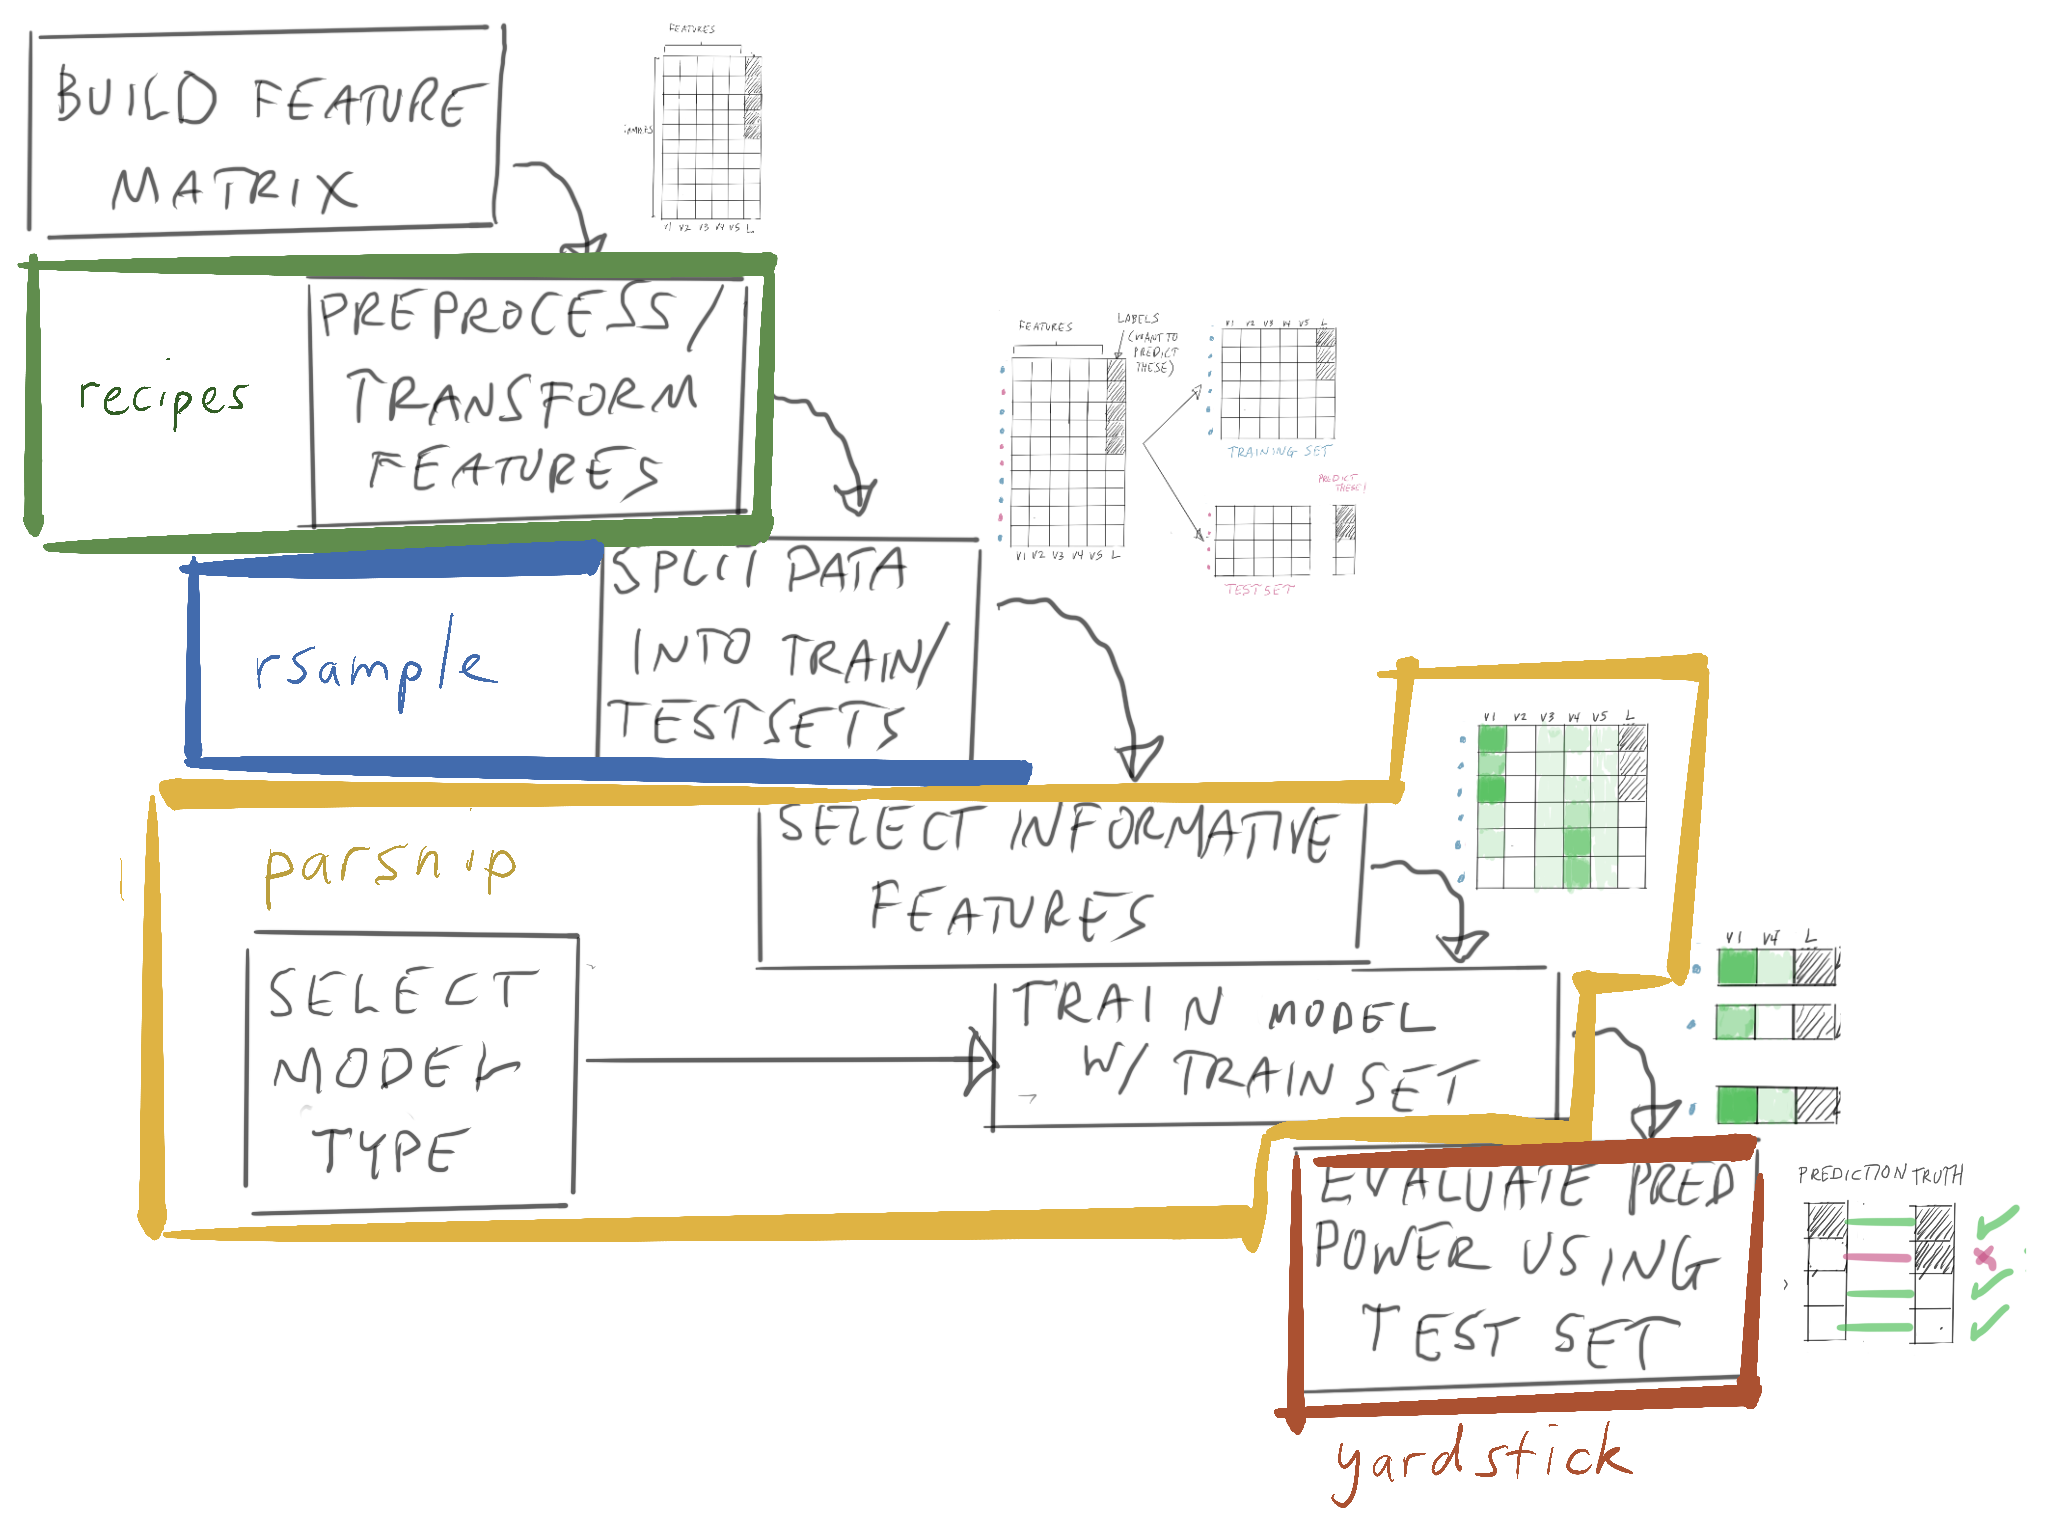 BUILD FEATURE
MATRIX
FEATURES
V1 V2 V3 V4 V5 L
recipes
PREPROCESS/
TRANSFORM
FEATURES
FEATURES
LABELS
(WANT TO
PREDICT
THESE)
V1 V2 V3 V4 V5 L
V1 V2 V3 V4 V5 L
TRAINING SET
PREDICT
THESE!
TEST SET
rsample
SPLIT DATA
INTO TRAIN/
TESTSETS
parsnip
SELECT INFORMATIVE
FEATURES
V1 V2 V3 V4 V5 L
SELECT
MODEL
TYPE
TRAIN MODEL
W/ TRAIN SET
V1 V4 L
EVALUATE PRED
POWER USING
TEST SET
PREDICTION TRUTH
yardstick